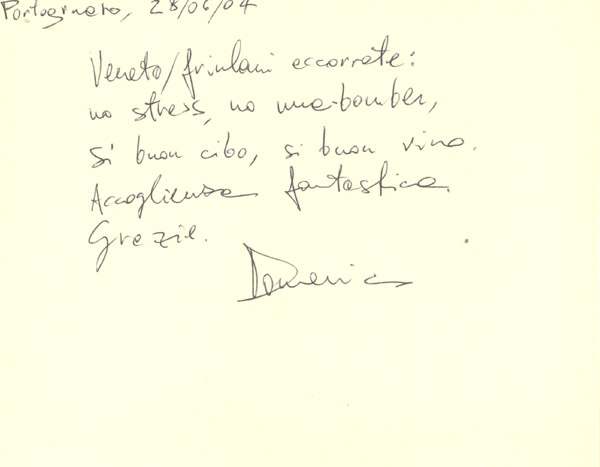 Portogruaro, 28/06/04
Veneto/friulani accorrete:
no stress, no una-bomber,
si buon cibo, si buon vino.
Accoglienza fantastica.
Grazie.
Domenico